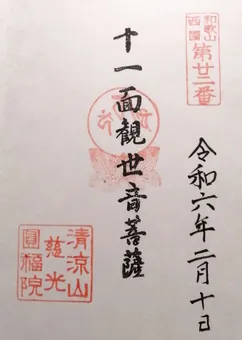 和歌山
西國
第廿二番
令和六年二月十日
十一面観世音菩薩
清涼山
慈光
圓福院